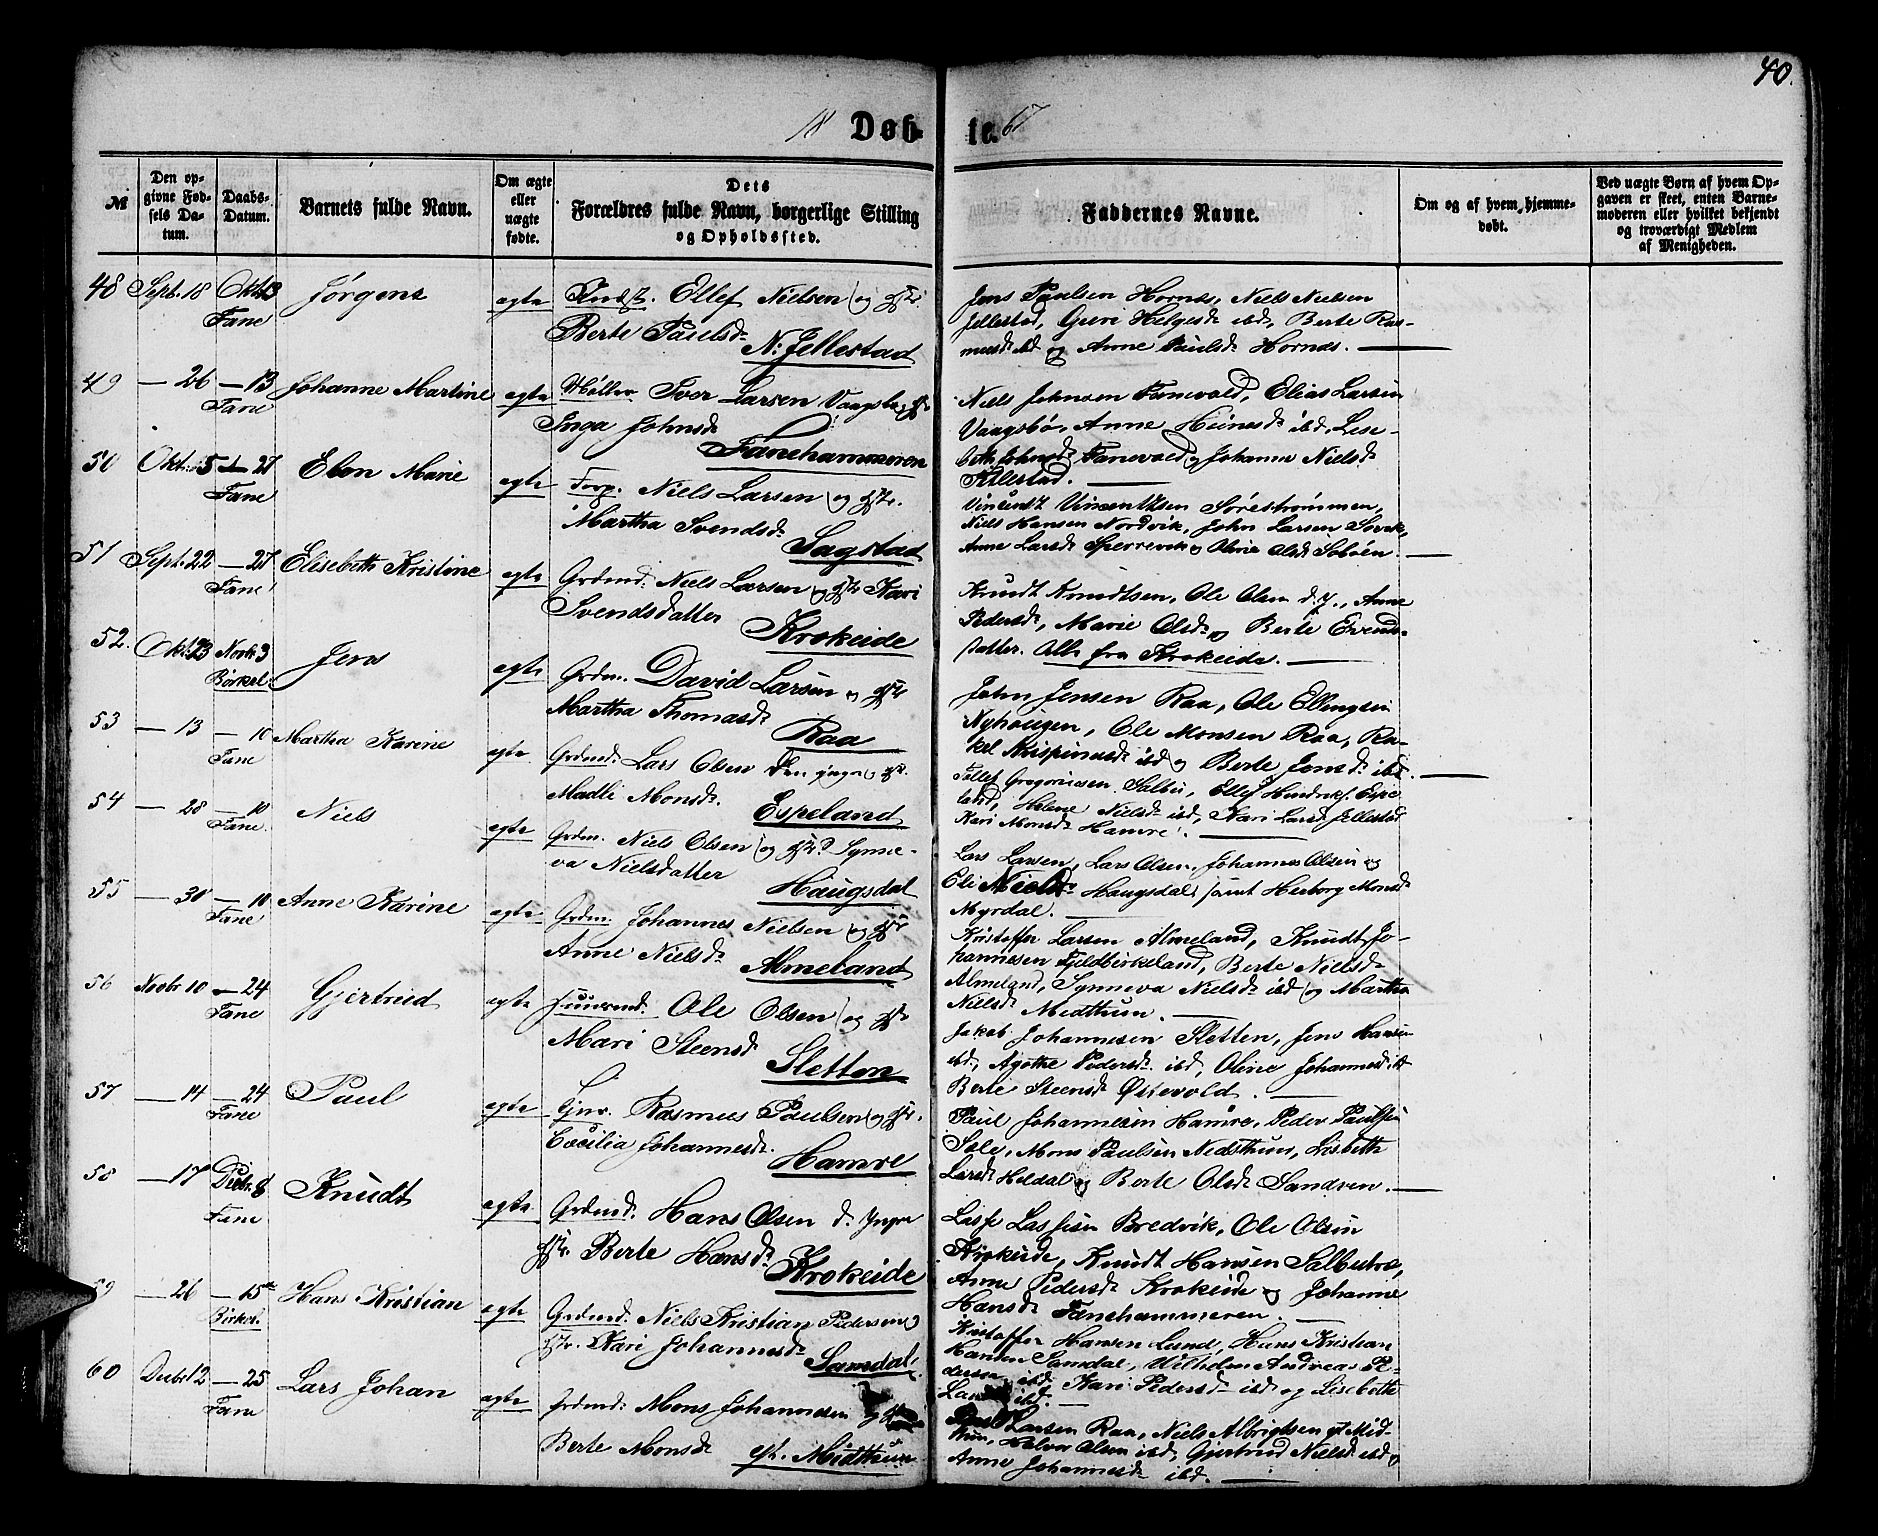 40.
18 Døb- te. 67
№
Den op-
givne Fød-
sels Da-
tum.
Daabs-
Datum.
Barnets fulde Navn.
Om ægte
eller
uægte
fødte.
Dets
Forældres fulde Navn, borgerlige Stilling
og Opholdssted.
Faddernes Navne.
Om og af hvem hjemme-
døbt.
Ved uægte Børn af hvem Op-
gaven er skeet, enten Barne-
moderen eller hvilket bekjendt
og troværdigt Medlem
af Menigheden.
48 Sept. 18 Okt. 13 Jørgene egte Ellef Nielsen og Hstr.
Fane Berte Paulsd. N. Jellestad
Jens Paulsen Hornæs, Niels Nielsen
Jellestad, Guri Helgesd. ibd, Berte Ras-
musd. ibd og Anne Paulsd. Hornæs.
49 — 26 — 13 Johanne Martine egte Møller Iver Larsen Vaagsbø
Fane Inga Johnsd. Fanehammeren
Niels Johnsen Fanevold, Elias Larsen
Vaagsbø, Anne ibd, Lise-
beth Johnsd. Fanevold og Johanne Nielsd.
Jellestad.
50 Okt. 5 — 27 Elen Marie egte Forp. Niels Larsen og Hstr.
Fane Martha Svendsd. Sagstad
Vincent Vincentsen Sørestrømmen,
Niels Hansen Nordvik, John Larsen Sørvik,
Anne Larsd. Sperrevik og Oline Olsd.
51 Sept. 22 — 27 Elisabeth Kristine egte Grdmd. Niels Larsen og Hstr. Kari
Fane Svendsdatter Krokeide
Knudt Knudtsen, Ole Olsen d. y., Anne
Pedersd., Marie Olsd. og Berte Evends-
datter. Alle fra Krokeide.
52. Okt. 23 Novbr. 3 Jens egte Grdm. David Larsen og Hstr.
Birkel. Martha Thomasd. Raa
John Jensen Raa, Ole Ellingsen
Nyhaugen, Ole Monsen Raa, Ra-
kel Krispinusd. ibd og Berte Jensd. ibd.
53 — 13 — 10 Martha Karine egte Grdmd. Lars Olsen den yngre og Hstr.
Fane Madli Monsd. Espeland
Tollef Gregoriusen Sælen, Ellef Hindriks. Espe-
land, Helene Nielsd. ibd, Kari Larsd. Jellestad
Kari Monsd. Hamre.
54 — 28 — 10 Niels egte Grdm. Niels Olsen og Hstr. Synne-
Fane. va Nielsdatter Haugsdal
Lars Larsen, Lars Olsen, Johannes Olsen og
Eli Nielsd. Haugsdal, samt Herborg Monsd.
Myrdal.
55 — 30 — 10 Anne Karine egte Grdm. Johannes Nielsen og Hstr.
Fane Anne Nielsd. Almeland
Kristoffer Larsen Almeland, Knudt Jo-
hannesen Fjeldbirkeland, Berte Nielsd.
Almeland, Synneva Nielsd. ibd og Martha
Nielsd. Midthun.
56 Novbr. 10 — 24 Gjertrud egte Ole Olsen og Hstr.
Fane Mari Steensd. Sletten
Jakob Johannesen Sletten, Jens Hansen
ibd, Agathe Pedersd. ibd, Oline Johannesd. ibd
Berte Steensd. Østevold.
57 — 14 — 24 Paul egte Rasmus Paulsen og Hstr.
Fane Cæcilia Johannesd. Hamre
Paul Johannesen Hamre, Peder Paulsen
Sæle, Mons Paulsen Nedsthun, Lisbeth
Larsd. Heldal og Berte Olsd. Sandven.
58 — 17 Decbr. 8 Knudt egte Grdmd. Hans Olsen d. yngre
Fane Hstr. Berte Hansd. Krokeide
Lasse Lassesen Bredvik, Ole Olsen
Krokeide, Knudt Hansen
Anne Pedersd. Krokeide og Johanne
Hansd. Fanehammeren.
59 — 26 — 15de Hans Kristian egte Grdmd. Niels Kristian Pedersen og
Birkel. Hstr. Kari Johannesd. Samdal
Kristoffer Hansen Lund, Hans Kristian
Hansen Samdal, Wilhelm Andreas Pe-
dersen ibd, Kari Pedersd. ibd og Lisebeth
ibd.
60 Decbr. 12 — 25 Lars Johan egte Grdmd. Mons Johannesen og
Fane Berte Monsd. Midthun
Larsen Raa, Niels Albrigtsen Mid-
thun, Halvor Olsen ibd, Gjertrud Nielsd. ibd og
Anne Johannesd. ibd.